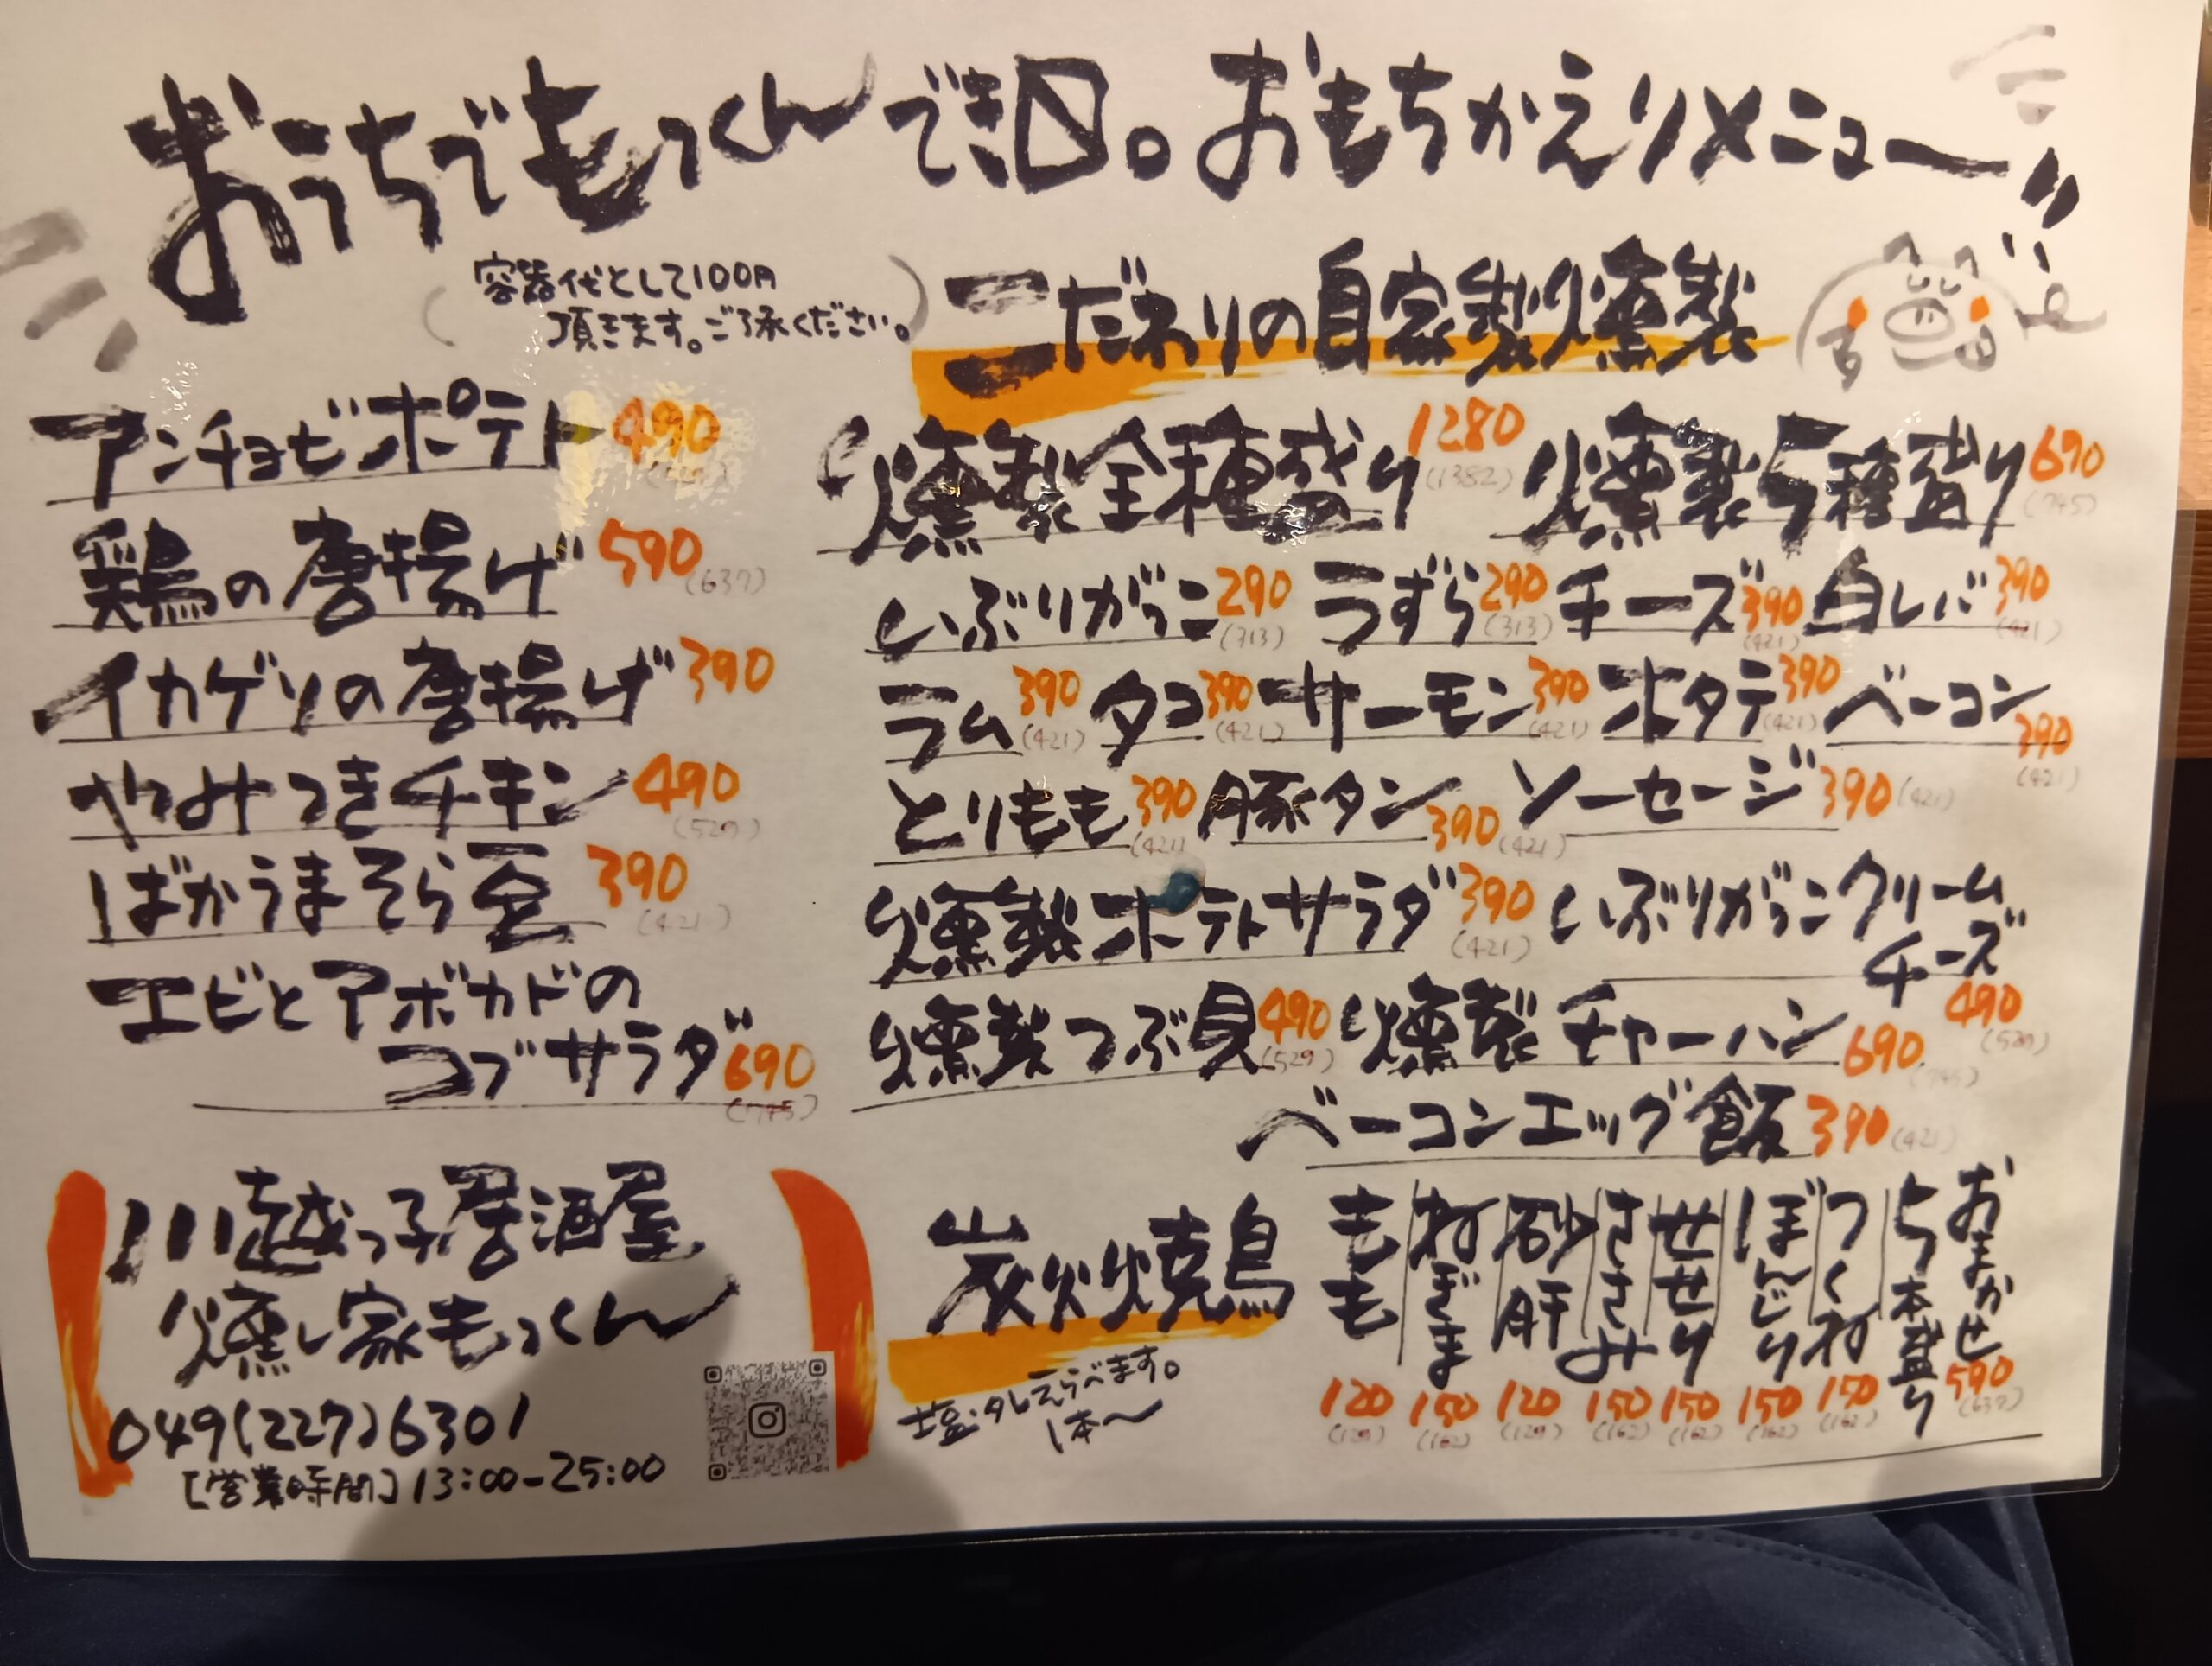 おうちでもっくんでき〼。おもちかえりメニュー
容器代として100円
頂きます。ご了承ください。
アンチョビポテト 490
鶏の唐揚げ 590 (637)
イカゲソの唐揚げ 390
やみつきチキン 490 (529)
ばかうまそら豆 390 (421)
エビとアボカドの
コブサラダ 690 (745)
こだわりの自家製燻製
燻製全種盛り 1280 (1382) 燻製5種盛り 690 (745)
いぶりがっこ 290 (313) うずら 290 (313) チーズ 390 (421) 白レバ 390 (421)
ラム 390 (421) タコ 390 (421) サーモン 390 (421) ホタテ 390 (421) ベーコン 390 (421)
とりもも 390 (421) 豚タン 390 (421) ソーセージ 390 (421)
燻製ポテトサラダ 390 (421) いぶりがっこクリーム
チーズ 490 (529)
燻製つぶ貝 490 (529) 燻製チャーハン 690 (745)
ベーコンエッグ飯 390 (421)
炭火焼鳥
塩・タレえらべます。
1本〜
もも 120 (129)
ねぎま 150 (162)
砂肝 120 (129)
ささみ 150 (162)
せせり 150 (162)
ぼんじり 150 (162)
つくね 150 (162)
おまかせ
5本盛り 590 (637)
川越っ子居酒屋
燻し家もっくん
049(227)6301
[営業時間] 13:00-25:00